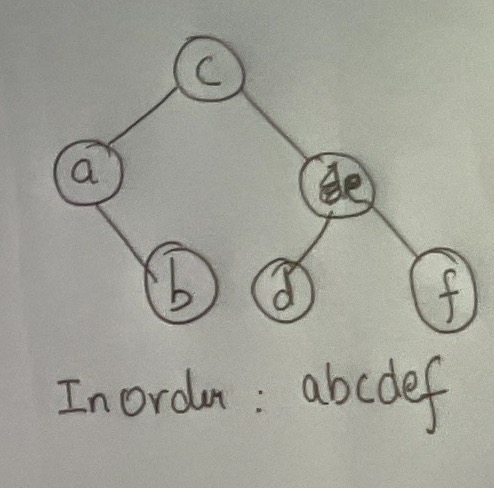 c
a
e
b
d
f
Inorder : abcdef